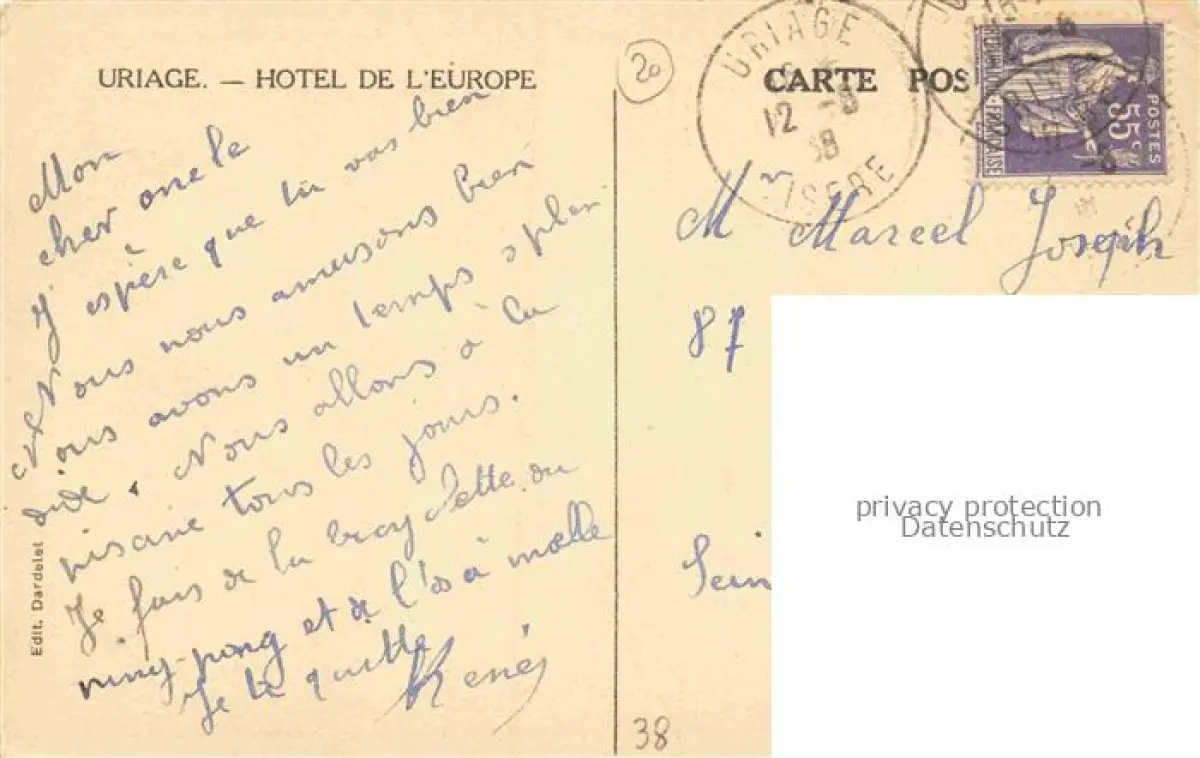 URIAGE. — HOTEL DE L'EUROPE
Mon
cher oncle
J'espère que tu vas bien
Nous nous amusons bien
nous avons un temps splen
dide. Nous allons à la
piscine tous les jours.
Je fais de la bicyclette du
ping-pong et de l'
Je te quitte
René
Edit. Dardelet
20
38
CARTE POS
URIAGE
12 -8
38
ISERE
POSTES
55c
REPUBLIQUE FRANÇAISE
Mr Marcel Joseph
87
Sein
privacy protection
Datenschutz